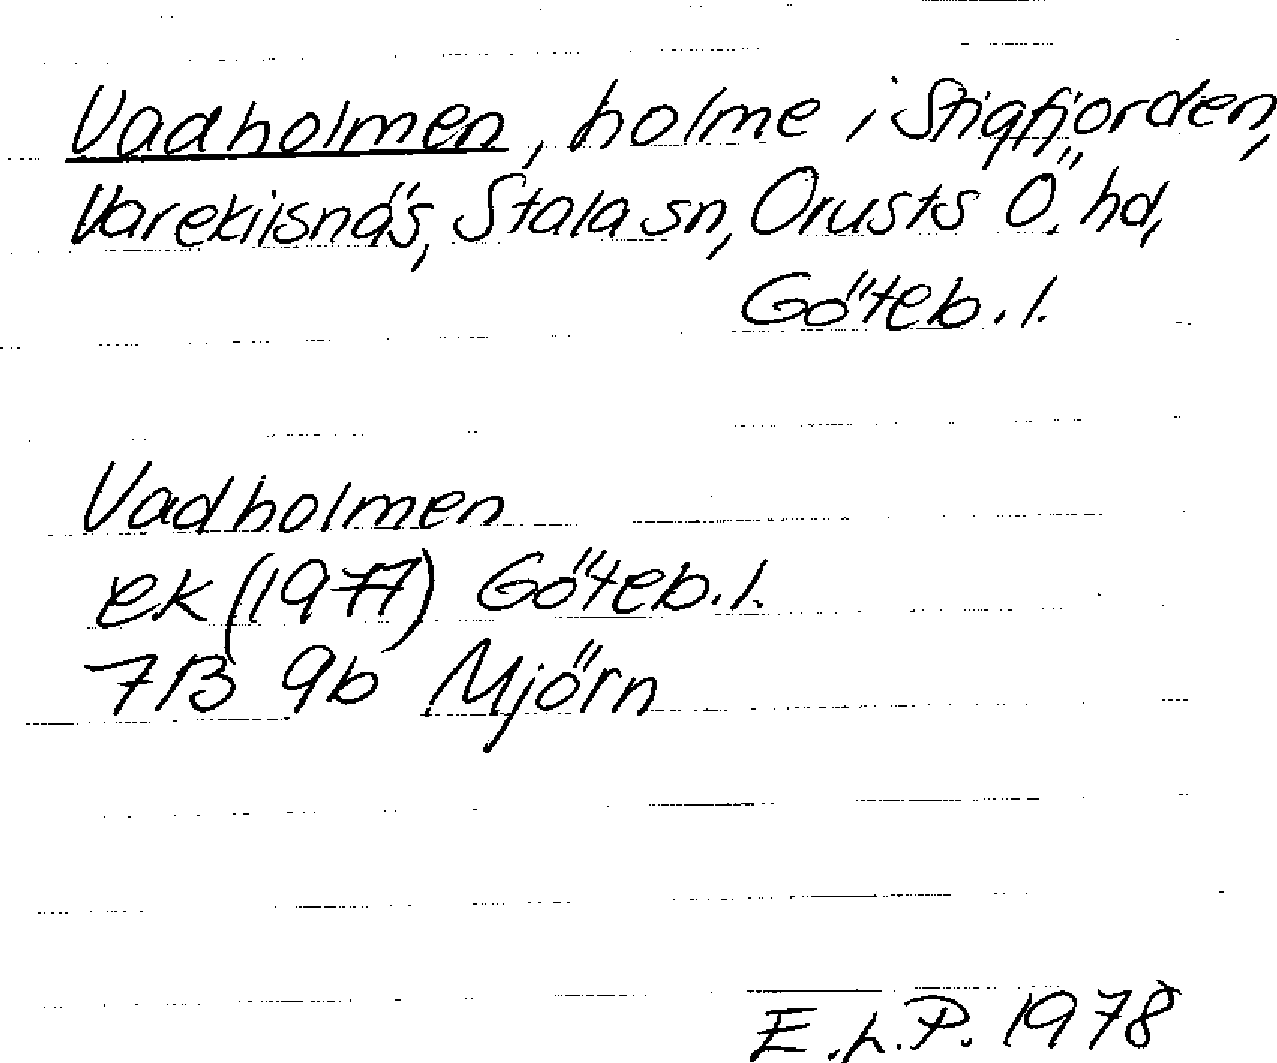 Vadholmen, holme i Stigfjorden,
Varekilsnäs, Stala sn, Orusts Ö. hd,
Göteb. l.
Vadholmen
ek (1977) Göteb. l.
7B 9b Mjörn
E.L.P. 1978